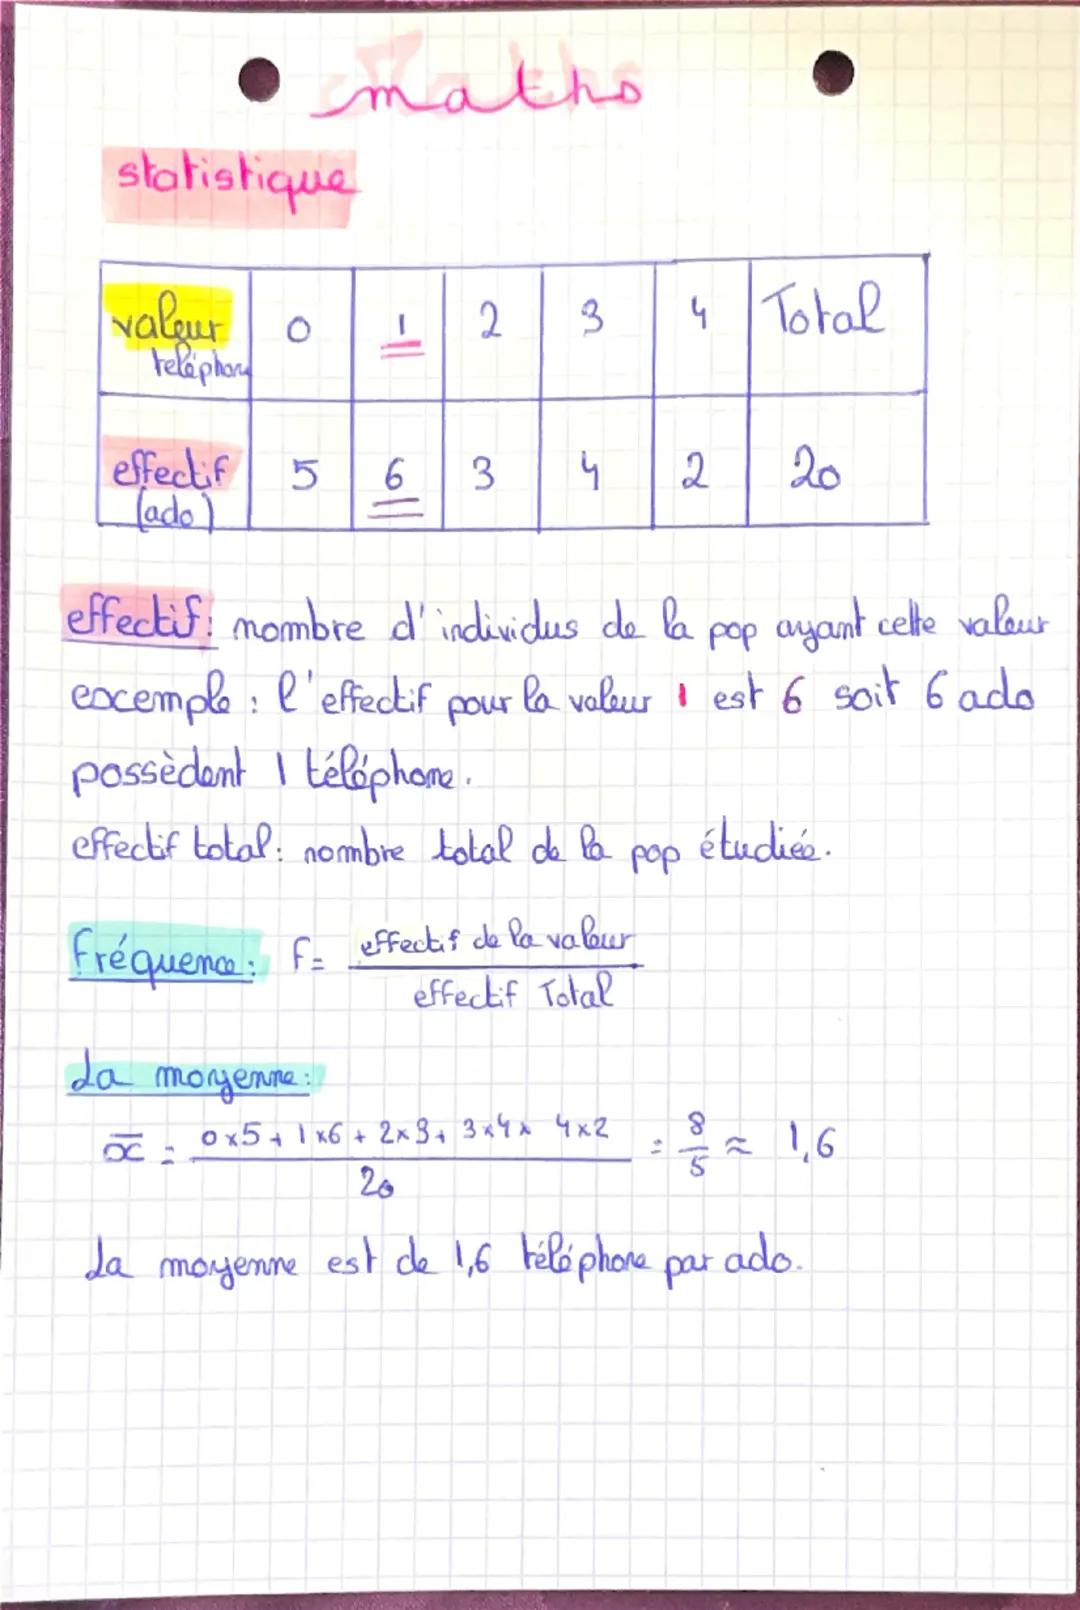 maths
statistique
valeur 0 1 2 3 4 Total
teléphone
effectif 5 6 3 4 2 20
(ado)
effectif: nombre d'individus de la pop ayant cette valeur
excemple : l'effectif pour la valeur 1 est 6 soit 6 ado
possèdent 1 téléphone.
effectif total: nombre total de la pop étudiée.
Fréquence: F= effectif de la valeur
effectif Total
La moyenne:
x̄ = 0x5 + 1x6 + 2x3 + 3x4 x 4x2 = 8 ≈ 1,6
20 5
La moyenne est de 1,6 téléphone par ado.